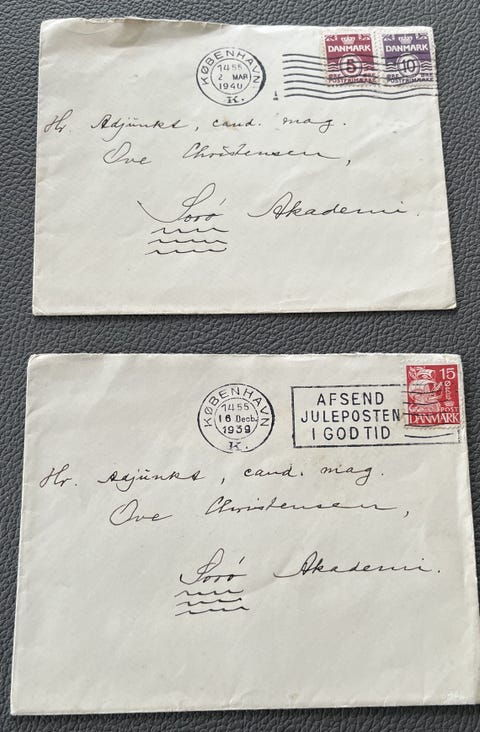 KØBENHAVN
1455
2 MAR
1940
K.
DANMARK
5
DANMARK
10
Hr. Adjunkt, cand. mag.
Ove Christensen,
Sorø Akademi.
KØBENHAVN
1455
16 Decb.
1939
K.
AFSEND
JULEPOSTEN
I GOD TID
15
ØRE
POST
DANMARK
Hr. Adjunkt, cand. mag.
Ove Christensen,
Sorø Akademi.